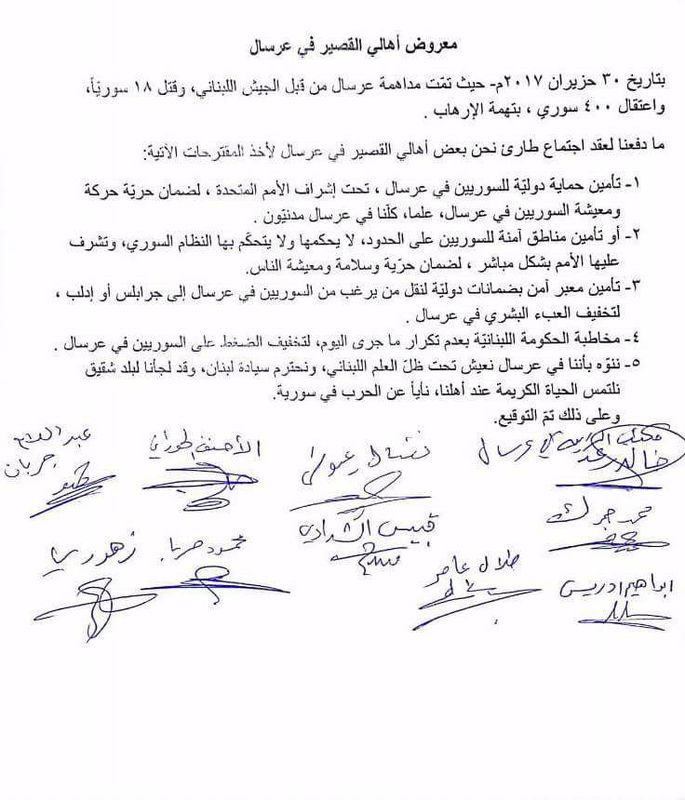 معروض أهالي القصير في عرسال
بتاريخ ٣٠ حزيران ٢٠١٧م- حيث تمّت مداهمة عرسال من قبل الجيش اللبناني، وقتل ١٨ سوريّاً،
واعتقال ٤٠٠ سوري ، بتهمة الإرهاب .
ما دفعنا لعقد اجتماع طارئ نحن بعض أهالي القصير في عرسال لأخذ المقترحات الآتية:
١- تأمين حماية دوليّة للسوريين في عرسال ، تحت إشراف الأمم المتحدة ، لضمان حريّة حركة
ومعيشة السوريين في عرسال، علما، كلّنا في عرسال مدنيّون .
٢- أو تأمين مناطق آمنة للسوريين على الحدود، لا يحكمها ولا يتحكّم بها النظام السوري، وتشرف
عليها الأمم بشكل مباشر ، لضمان حرّية وسلامة ومعيشة الناس.
٣- تأمين معبر آمن بضمانات دوليّة لنقل من يرغب من السوريين في عرسال إلى جرابلس أو إدلب ،
لتخفيف العبء البشري في عرسال .
٤- مخاطبة الحكومة اللبنانيّة بعدم تكرار ما جرى اليوم، لتخفيف الضغط على السوريين في عرسال .
٥- ننوّه بأننا في عرسال نعيش تحت ظلّ العلم اللبناني، ونحترم سيادة لبنان، وقد لجأنا لبلد شقيق
نلتمس الحياة الكريمة عند أهلنا، نأياً عن الحرب في سورية.
وعلى ذلك تمّ التوقيع.
مكتب في عرسال
خالد رعد
عبد
جربان
محمد
طلال عامر
محمود حربا
زهوري
ابراهيم ادريس